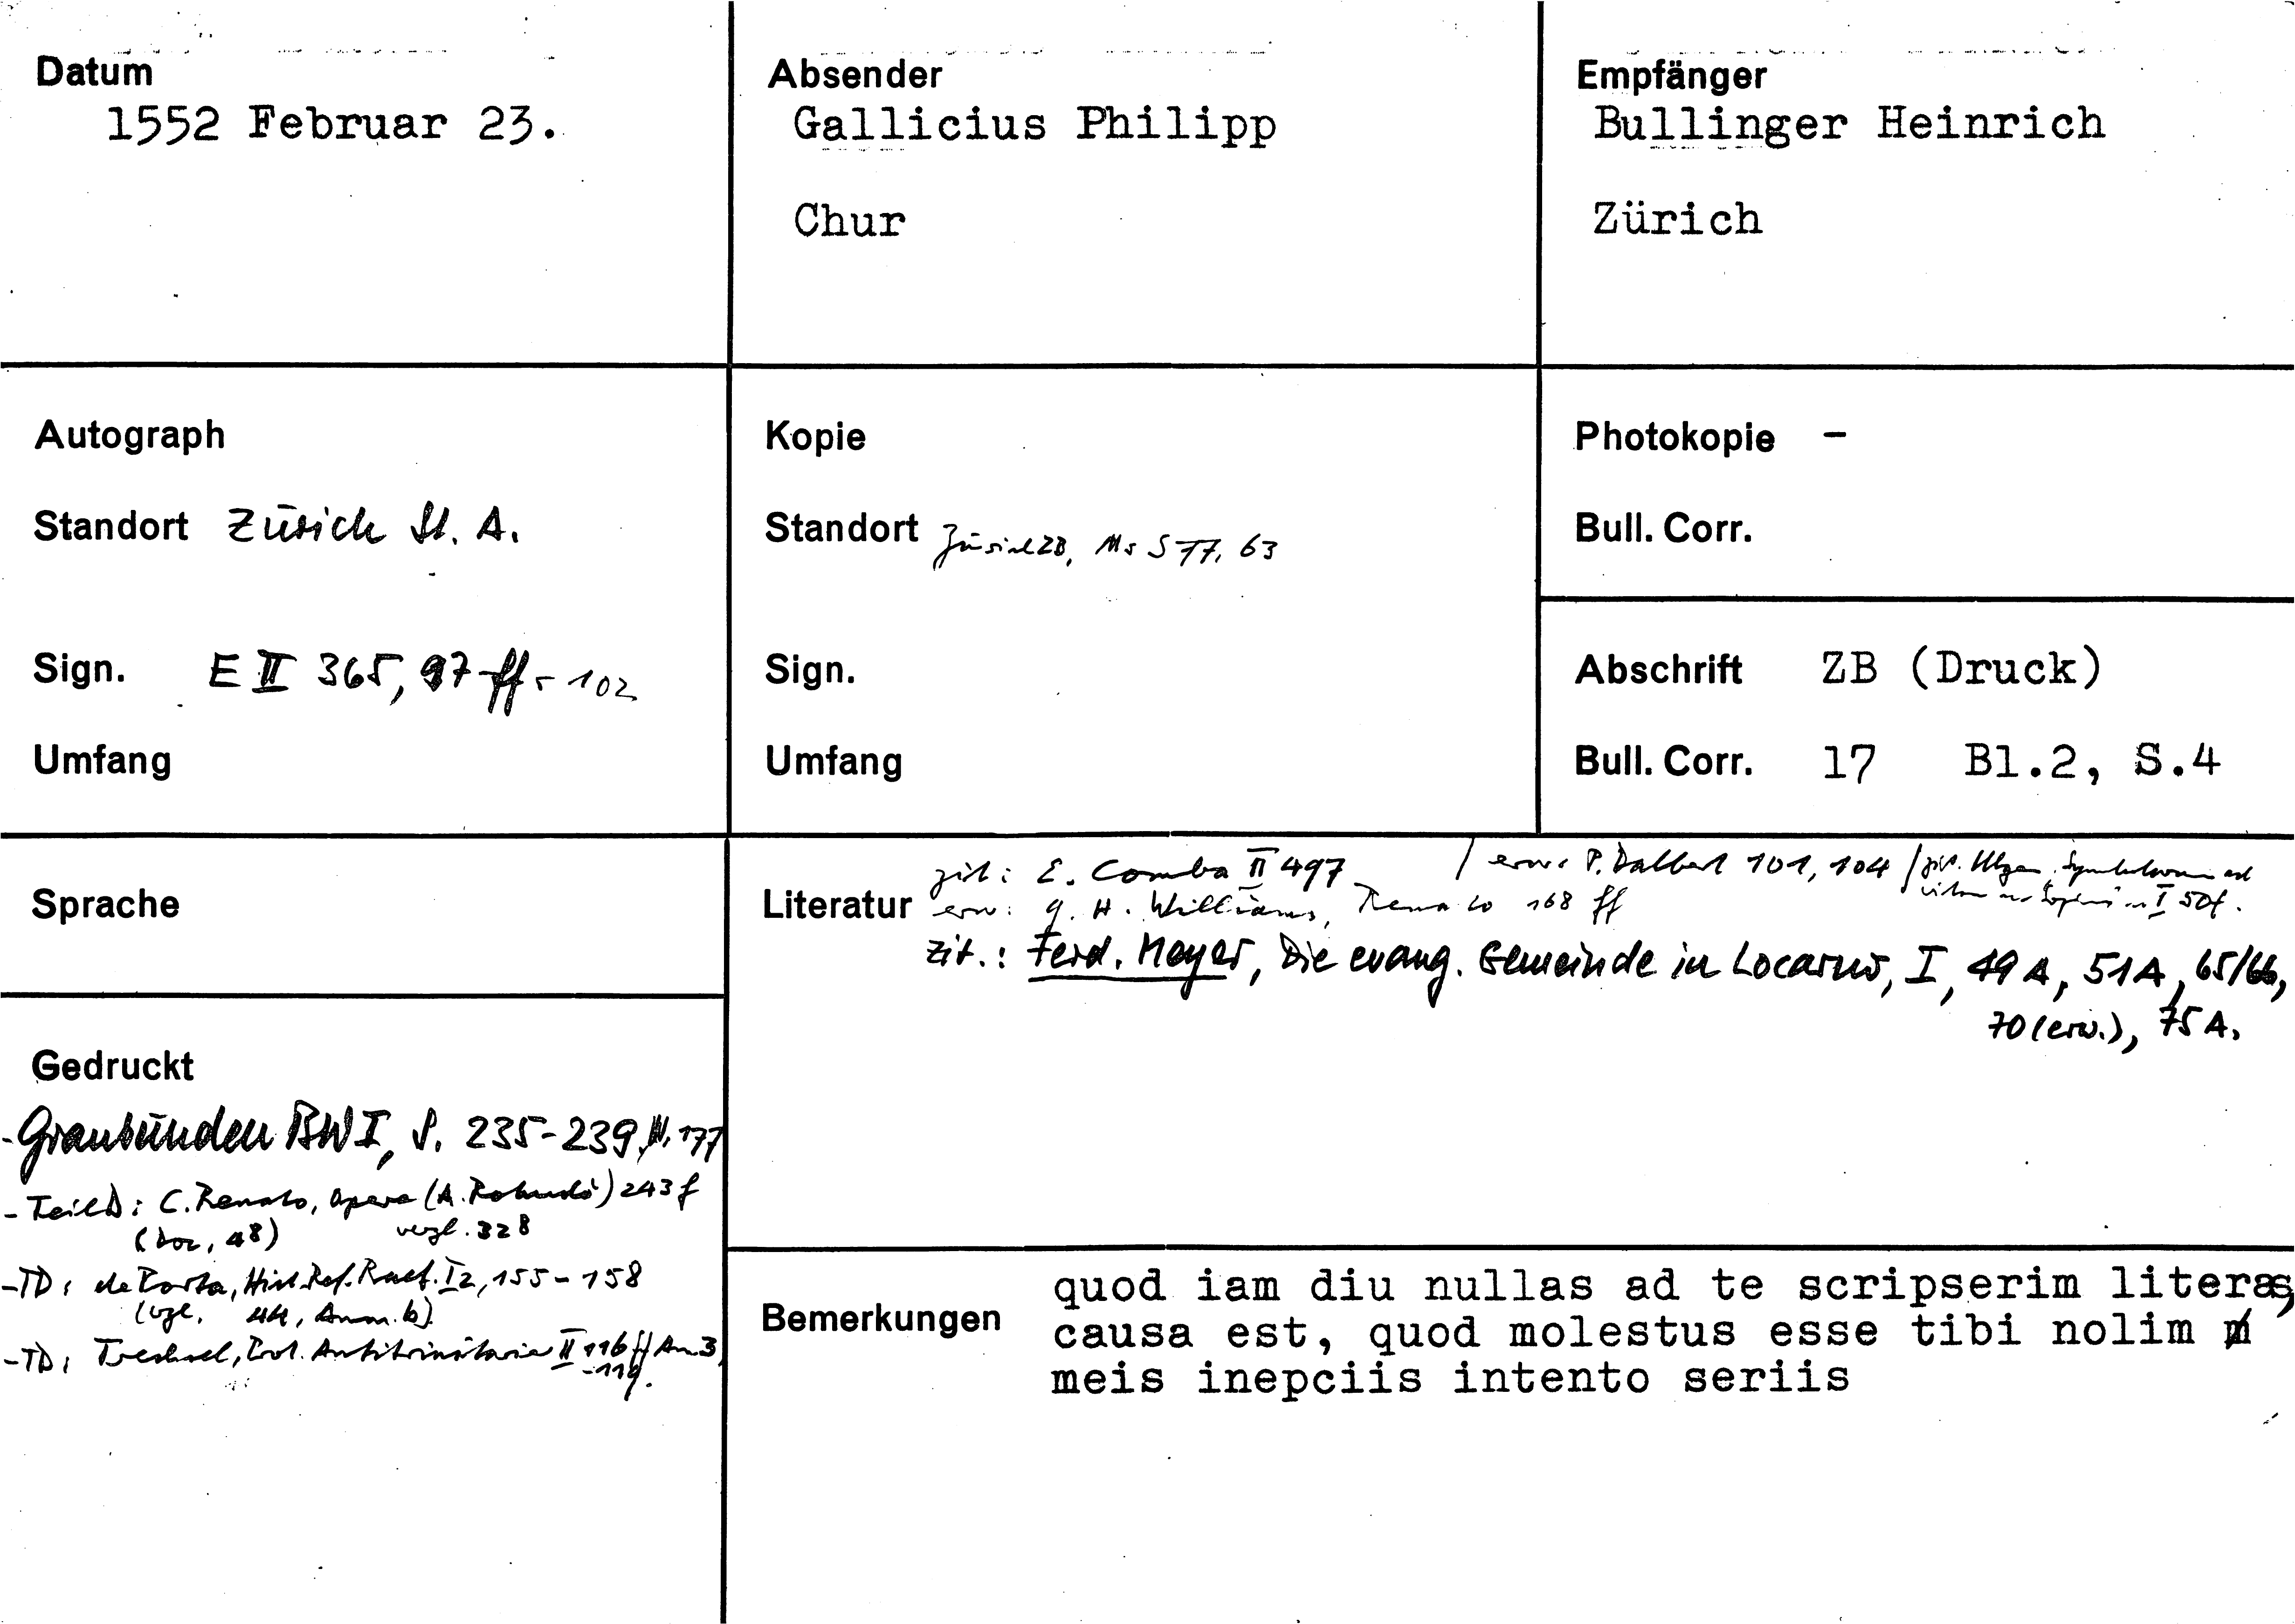 Datum
1552 Februar 23.
Absender
Gallicius Philipp
Chur
Empfänger
Bullinger Heinrich
Zürich
Autograph
Standort Zürich St. A.
Sign. E II 365, 97 ff - 102
Umfang
Kopie
Standort Zürich ZB, Ms S 77, 63
Sign.
Umfang
Photokopie -
Bull. Corr.
Abschrift ZB (Druck)
Bull. Corr. 17 Bl.2, S.4
Sprache
Gedruckt
- Graubünden BW I, S. 235-239, 177
- Teild: C. Renato, Opere (A. Rotondò) 243 f
(Doc, 48) vergl. 328
- TD: de Porta, Hist. Ref. Raet. I 2, 155 - 158
(vgl. 44, Anm. b).
- TD: Trechsel, Prot. Antitrinitarier II 116 ff An 3
-119.
Literatur
zit: E. Comba II 497 / erw: P. Dalbert 101, 104 / zit.
I 50 f.
erw: G. H. Williams, Renato 168 ff
zit.: Ferd. Meyer, Die evang. Gemeinde in Locarno, I, 49 A, 51 A, 65/66,
70 (erw.), 75 A.
Bemerkungen
quod iam diu nullas ad te scripserim literas,
causa est, quod molestus esse tibi nolim
meis inepciis intento seriis